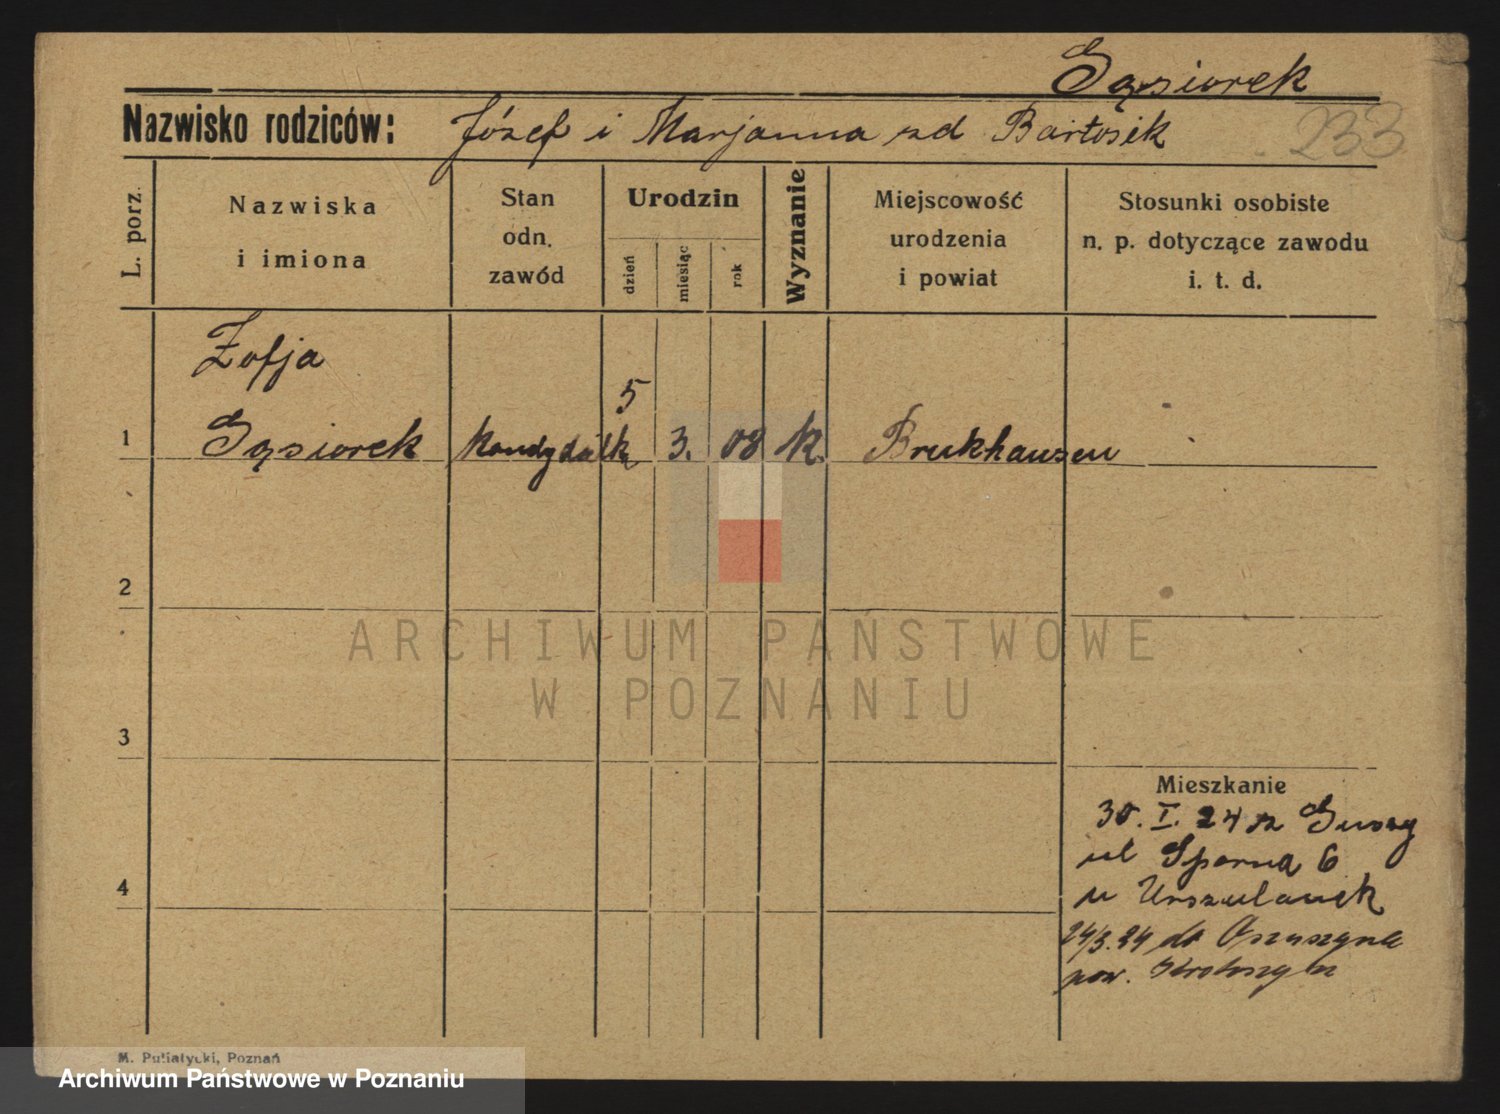 Gąsiorek
Nazwisko rodziców: Józef i Marjanna zd Bartosik
233
L. porz.
Nazwiska
i imiona
Stan
odn.
zawód
Urodzin
dzień
miesiąc
rok
Wyznanie
Miejscowość
urodzenia
i powiat
Stosunki osobiste
n. p. dotyczące zawodu
i. t. d.
Zofja
1 Gąsiorek kandydatk 5 3. 08 k. Bruckhausen
2
3
4
ARCHIWUM PAŃSTWOWE
W POZNANIU
Mieszkanie
30. I. 24 z
ul Sporna 6
u Urszulanek
24/3. 24 do
pow. Krotoszyn
M. Putiatycki, Poznań
Archiwum Państwowe w Poznaniu